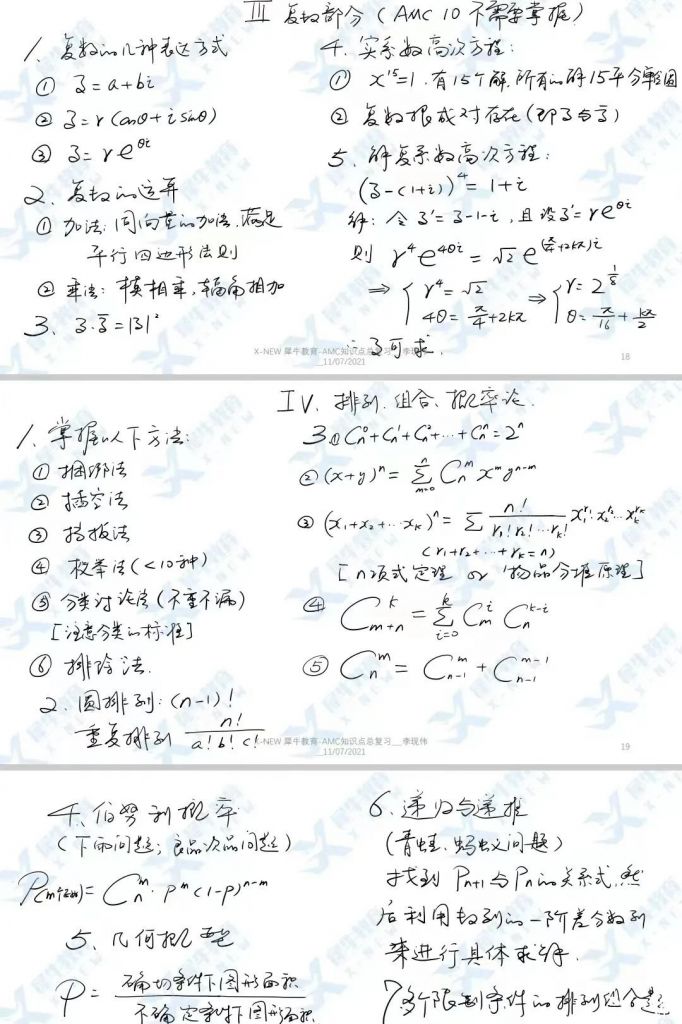 III 复数部分 (AMC 10 不需要掌握)
1、复数的几种表达方式
① z = a + bi
② z = r (cosθ + i sinθ)
③ z = r e^{θi}
2、复数的运算
① 加法: 同向量的加法, 满足
平行四边形法则
② 乘法: 模相乘, 辐角相加
3、z·z̄ = |z|²
4、实系数高次方程:
① x^{15} = 1, 有15个解, 所有的解15平分单位圆
② 复数根成对存在 (即 z 与 z̄)
5、解复系数高次方程:
(z - (1+i))^4 = 1 + i
解: 令 z' = z - 1 - i, 且设 z' = r e^{θi}
则 r^4 e^{4θi} = √2 e^{(π/4 + 2kπ)i}
⇒ { r^4 = √2 ⇒ { r = 2^{1/8}
4θ = π/4 + 2kπ θ = π/16 + kπ/2
∴ z 可求.
X-NEW 犀牛教育-AMC知识点总复习__李现伟
__11/07/2021
18
IV、排列、组合、概率论.
1、掌握以下方法:
① 捆绑法
② 插空法
③ 挡板法
④ 枚举法 (<10种)
⑤ 分类讨论法 (不重不漏)
[注意分类的标准]
⑥ 排除法.
2、圆排列: (n-1)!
重复排列 n! / (a! b! c!)
3、① C_n^0 + C_n^1 + C_n^2 + ··· + C_n^n = 2^n
② (x+y)^n = Σ_{m=0}^{n} C_n^m x^m y^{n-m}
③ (x_1 + x_2 + ··· x_k)^n = Σ n! / (r_1! r_2! ··· r_k!) x_1^{r_1} · x_2^{r_2} ··· x_k^{r_k}
(r_1 + r_2 + ··· + r_k = n)
[n项式定理 or 物品分堆原理]
④ C_{m+n}^k = Σ_{i=0}^{k} C_m^i C_n^{k-i}
⑤ C_n^m = C_{n-1}^m + C_{n-1}^{m-1}
X-NEW 犀牛教育-AMC知识点总复习__李现伟
__11/07/2021
19
4、伯努利概率
(下雨问题; 良品次品问题)
= C_n^m · p^m (1-p)^{n-m}
5、几何概型
P = 确切条件下图形面积 / 不确定条件下图形面积
6、递归与递推
(青蛙、蚂蚁问题)
找到 P_{n+1} 与 P_n 的关系式, 然
后利用数列的一阶差分数列
来进行具体求解.
7、多个限制条件的排列组合题